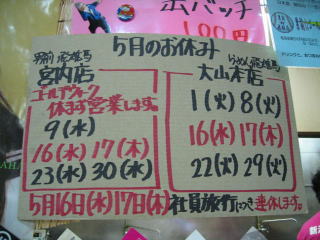 缶バッチ
100円
5月のお休み
宮内店
ゴールデンウィーク
休まず営業します。
9(水)
16(水) 17(木)
23(水) 30(水)
大山本店
1(火) 8(火)
16(水) 17(木)
22(火) 29(火)
5月16日(水)17日(木)社員旅行につき連休します。